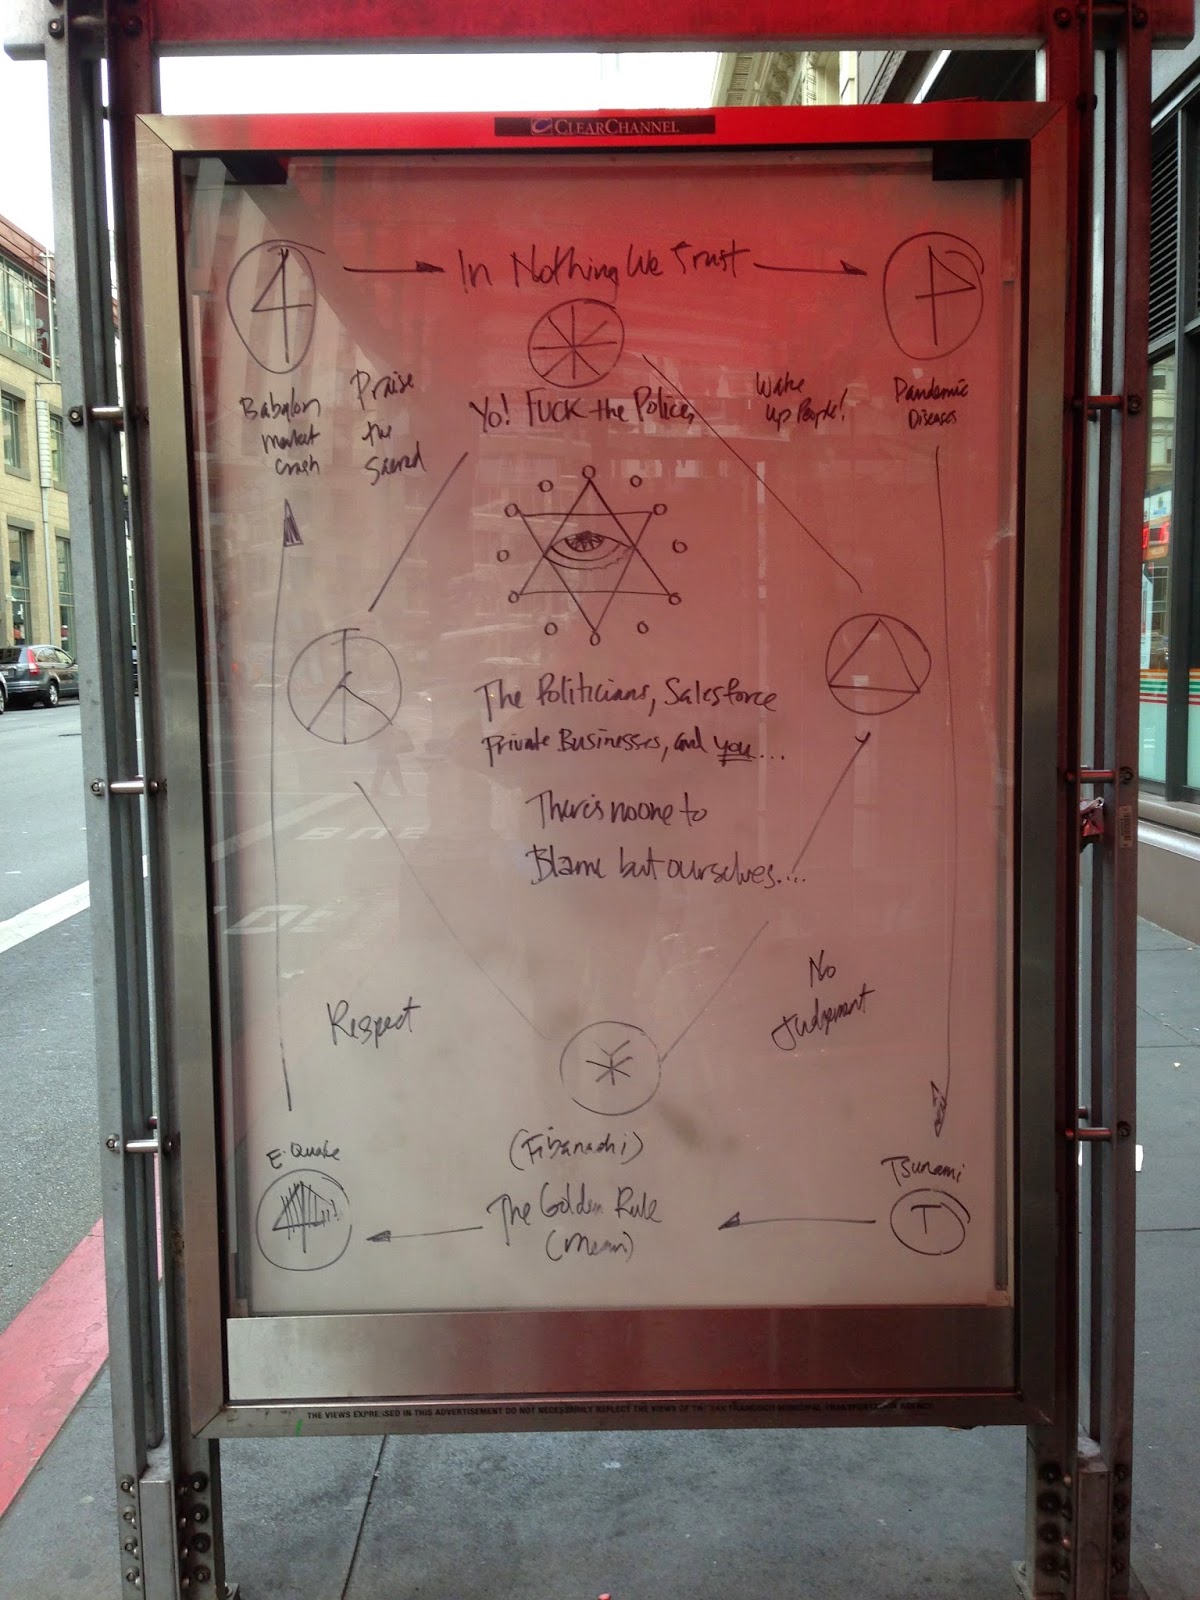 CLEARCHANNEL
In Nothing We Trust
Babylon
Market
Crash
Praise
the
Sacred
Yo! FUCK the Police,
Wake
Up People!
Pandemic
Diseases
The Politicians, Salesforce
Private Businesses, and you...
There's no one to
Blame but ourselves....
Respect
No
Judgement
E. Quake
(Fibanachi)
Tsunami
T
The Golden Rule
(Mean)
THE VIEWS EXPRESSED IN THIS ADVERTISEMENT DO NOT NECESSARILY REFLECT THE VIEWS OF THE SAN FRANCISCO MUNICIPAL TRANSPORTATION AGENCY